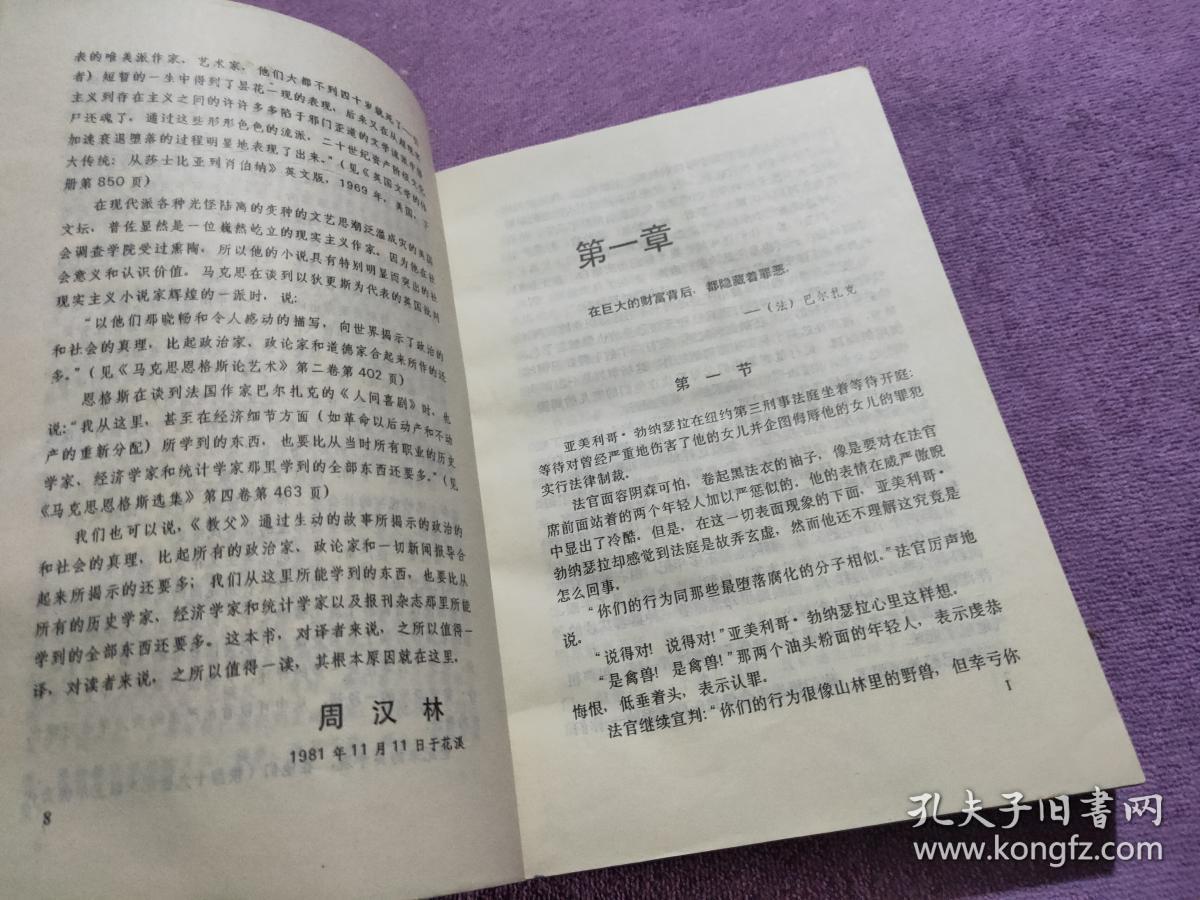 表的唯美派作家、艺术家，他们大都不到四十岁就死了——
者）短暂的一生中得到了昙花一现的表现，后来又在从超现实
主义到存在主义之间的许许多多陷于邪门歪道的文学流派中借
尸还魂了，通过这些形形色色的流派，二十世纪资产阶级文化
加速衰退堕落的过程明显地表现了出来。”（见《英国文学的伟
大传统：从莎士比亚到肖伯纳》英文版，1969年，美国，下
册第850页）
在现代派各种光怪陆离的变种的文艺思潮泛滥成灾的美国
文坛，普佐显然是一位巍然屹立的现实主义作家。因为他在社
会调查学院受过熏陶，所以他的小说具有特别明显而突出的社
会意义和认识价值。马克思在谈到以狄更斯为代表的英国批判
现实主义小说家辉煌的一派时，说：
“以他们那晓畅和令人感动的描写，向世界揭示了政治的
和社会的真理，比起政治家、政论家和道德家合起来所作的还
多。”（见《马克思恩格斯论艺术》第二卷第402页）
恩格斯在谈到法国作家巴尔扎克的《人间喜剧》时，他
说：“我从这里，甚至在经济细节方面（如革命以后动产和不动
产的重新分配）所学到的东西，也要比从当时所有职业的历史
学家、经济学家和统计学家那里学到的全部东西还要多。”（见
《马克思恩格斯选集》第四卷第463页）
我们也可以说，《教父》通过生动的故事所揭示的政治的
和社会的真理，比起所有的政治家、政论家和一切新闻报导合
起来所揭示的还要多；我们从这里所能学到的东西，也要比从
所有的历史学家、经济学家和统计学家以及报刊杂志那里所能
学到的全部东西还要多。这本书，对译者来说，之所以值得一
译，对读者来说，之所以值得一读，其根本原因就在这里。
周汉林
1981年11月11日于花溪
8
第一章
在巨大的财富背后，都隐藏着罪恶。
——（法）巴尔扎克
第一节
亚美利哥·勃纳瑟拉在纽约第三刑事法庭坐着等待开庭；
等待对曾经严重地伤害了他的女儿并企图侮辱他的女儿的罪犯
实行法律制裁。
法官面容阴森可怕，卷起黑法衣的袖子，像是要对在法官
席前面站着的两个年轻人加以严惩似的。他的表情在威严傲睨
中显出了冷酷。但是，在这一切表面现象的下面，亚美利哥·
勃纳瑟拉却感觉到法庭是故弄玄虚，然而他还不理解这究竟是
怎么回事。
“你们的行为同那些最堕落腐化的分子相似。”法官厉声地
说。
“说得对！说得对！”亚美利哥·勃纳瑟拉心里这样想。
“是禽兽！是禽兽！”那两个油头粉面的年轻人，表示虔恭
悔恨，低垂着头，表示认罪。
法官继续宣判：“你们的行为很像山林里的野兽，但幸亏你
1
孔夫子旧书网
www.kongfz.com